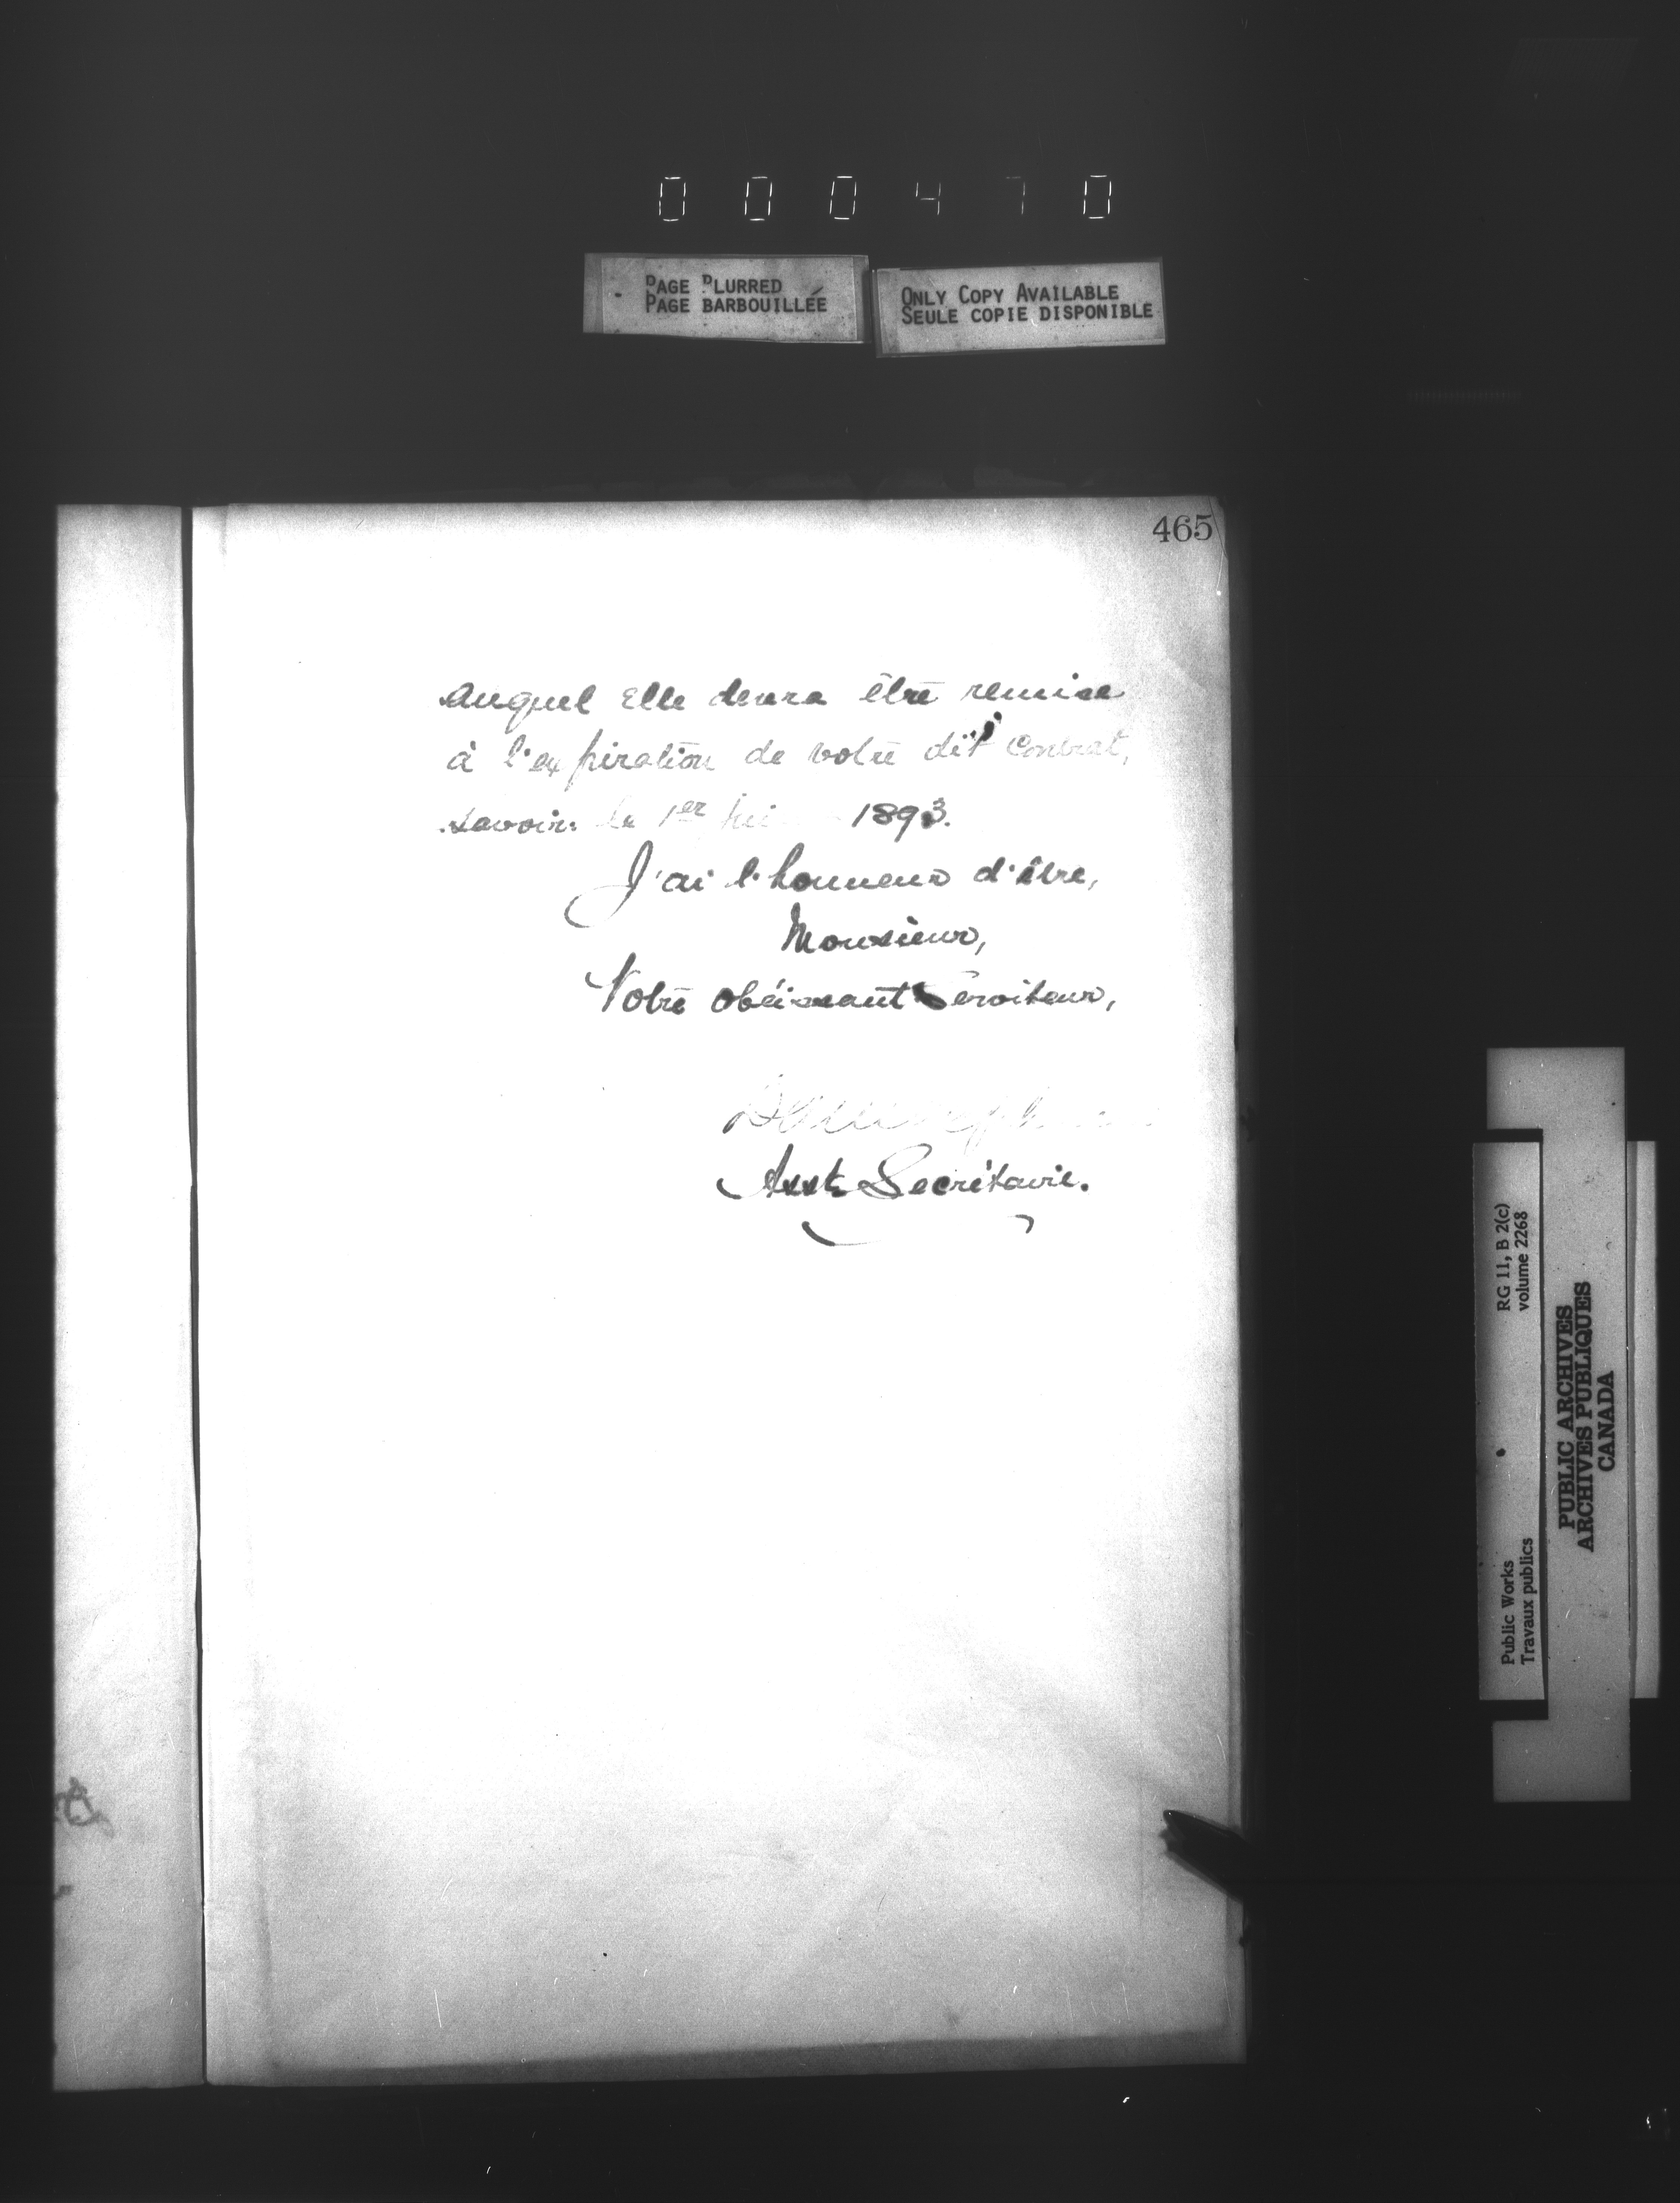 000470
PAGE BLURRED
PAGE BARBOUILLÉE
ONLY COPY AVAILABLE
SEULE COPIE DISPONIBLE
465
auquel Elle devra être remise
à l'expiration de votre dit Contrat,
savoir: le 1er 1893.
J'ai l'honneur d'être,
Monsieur,
Votre obéissant Serviteur,
Asst Secrétaire.
Public Works
Travaux publics
RG 11, B 2(c)
volume 2268
PUBLIC ARCHIVES
ARCHIVES PUBLIQUES
CANADA